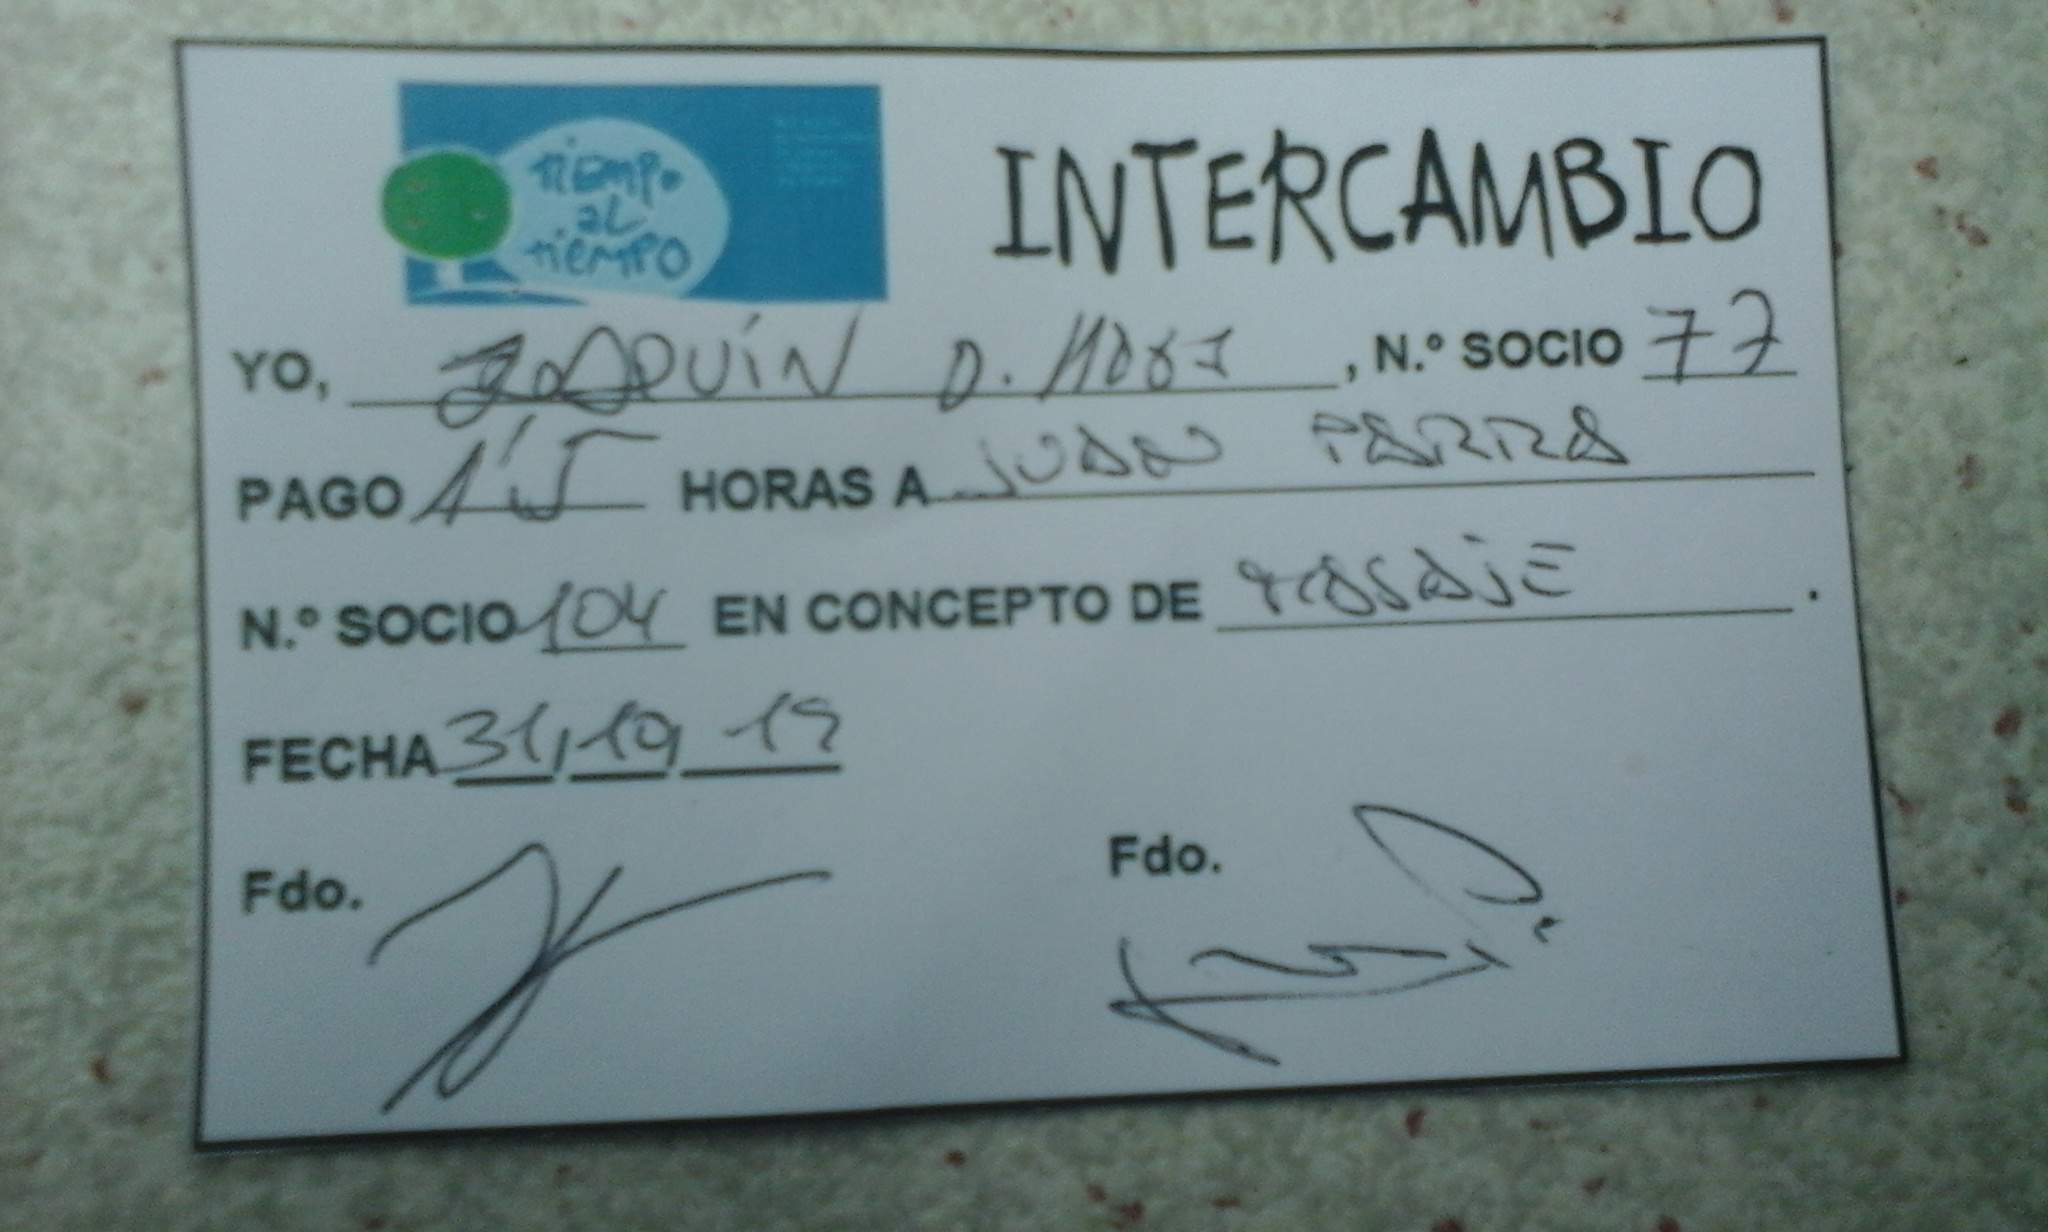 TIEMPO
AL
TIEMPO
INTERCAMBIO
YO, JOAQUÍN D. , N.º SOCIO 77
PAGO 1'5 HORAS A JUAN PARRA
N.º SOCIO 104 EN CONCEPTO DE MASAJE .
FECHA 31/10/19
Fdo. Fdo.